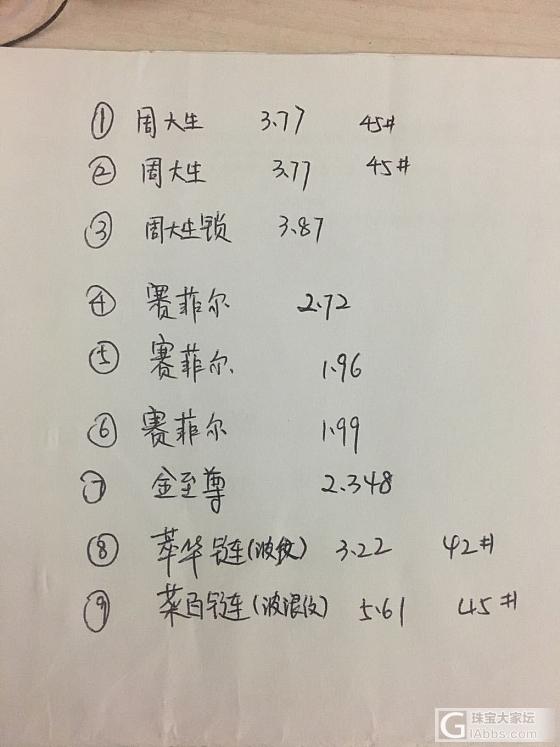 ① 周大生 3.77 45#
② 周大生 3.77 45#
③ 周大生锁 3.87
④ 赛菲尔 2.72
⑤ 赛菲尔 1.96
⑥ 赛菲尔 1.99
⑦ 金至尊 2.348
⑧ 萃华链(波纹) 3.22 42#
⑨ 菜百链(波浪纹) 5.61 45#
G 珠宝大家坛
GIAbbs.com